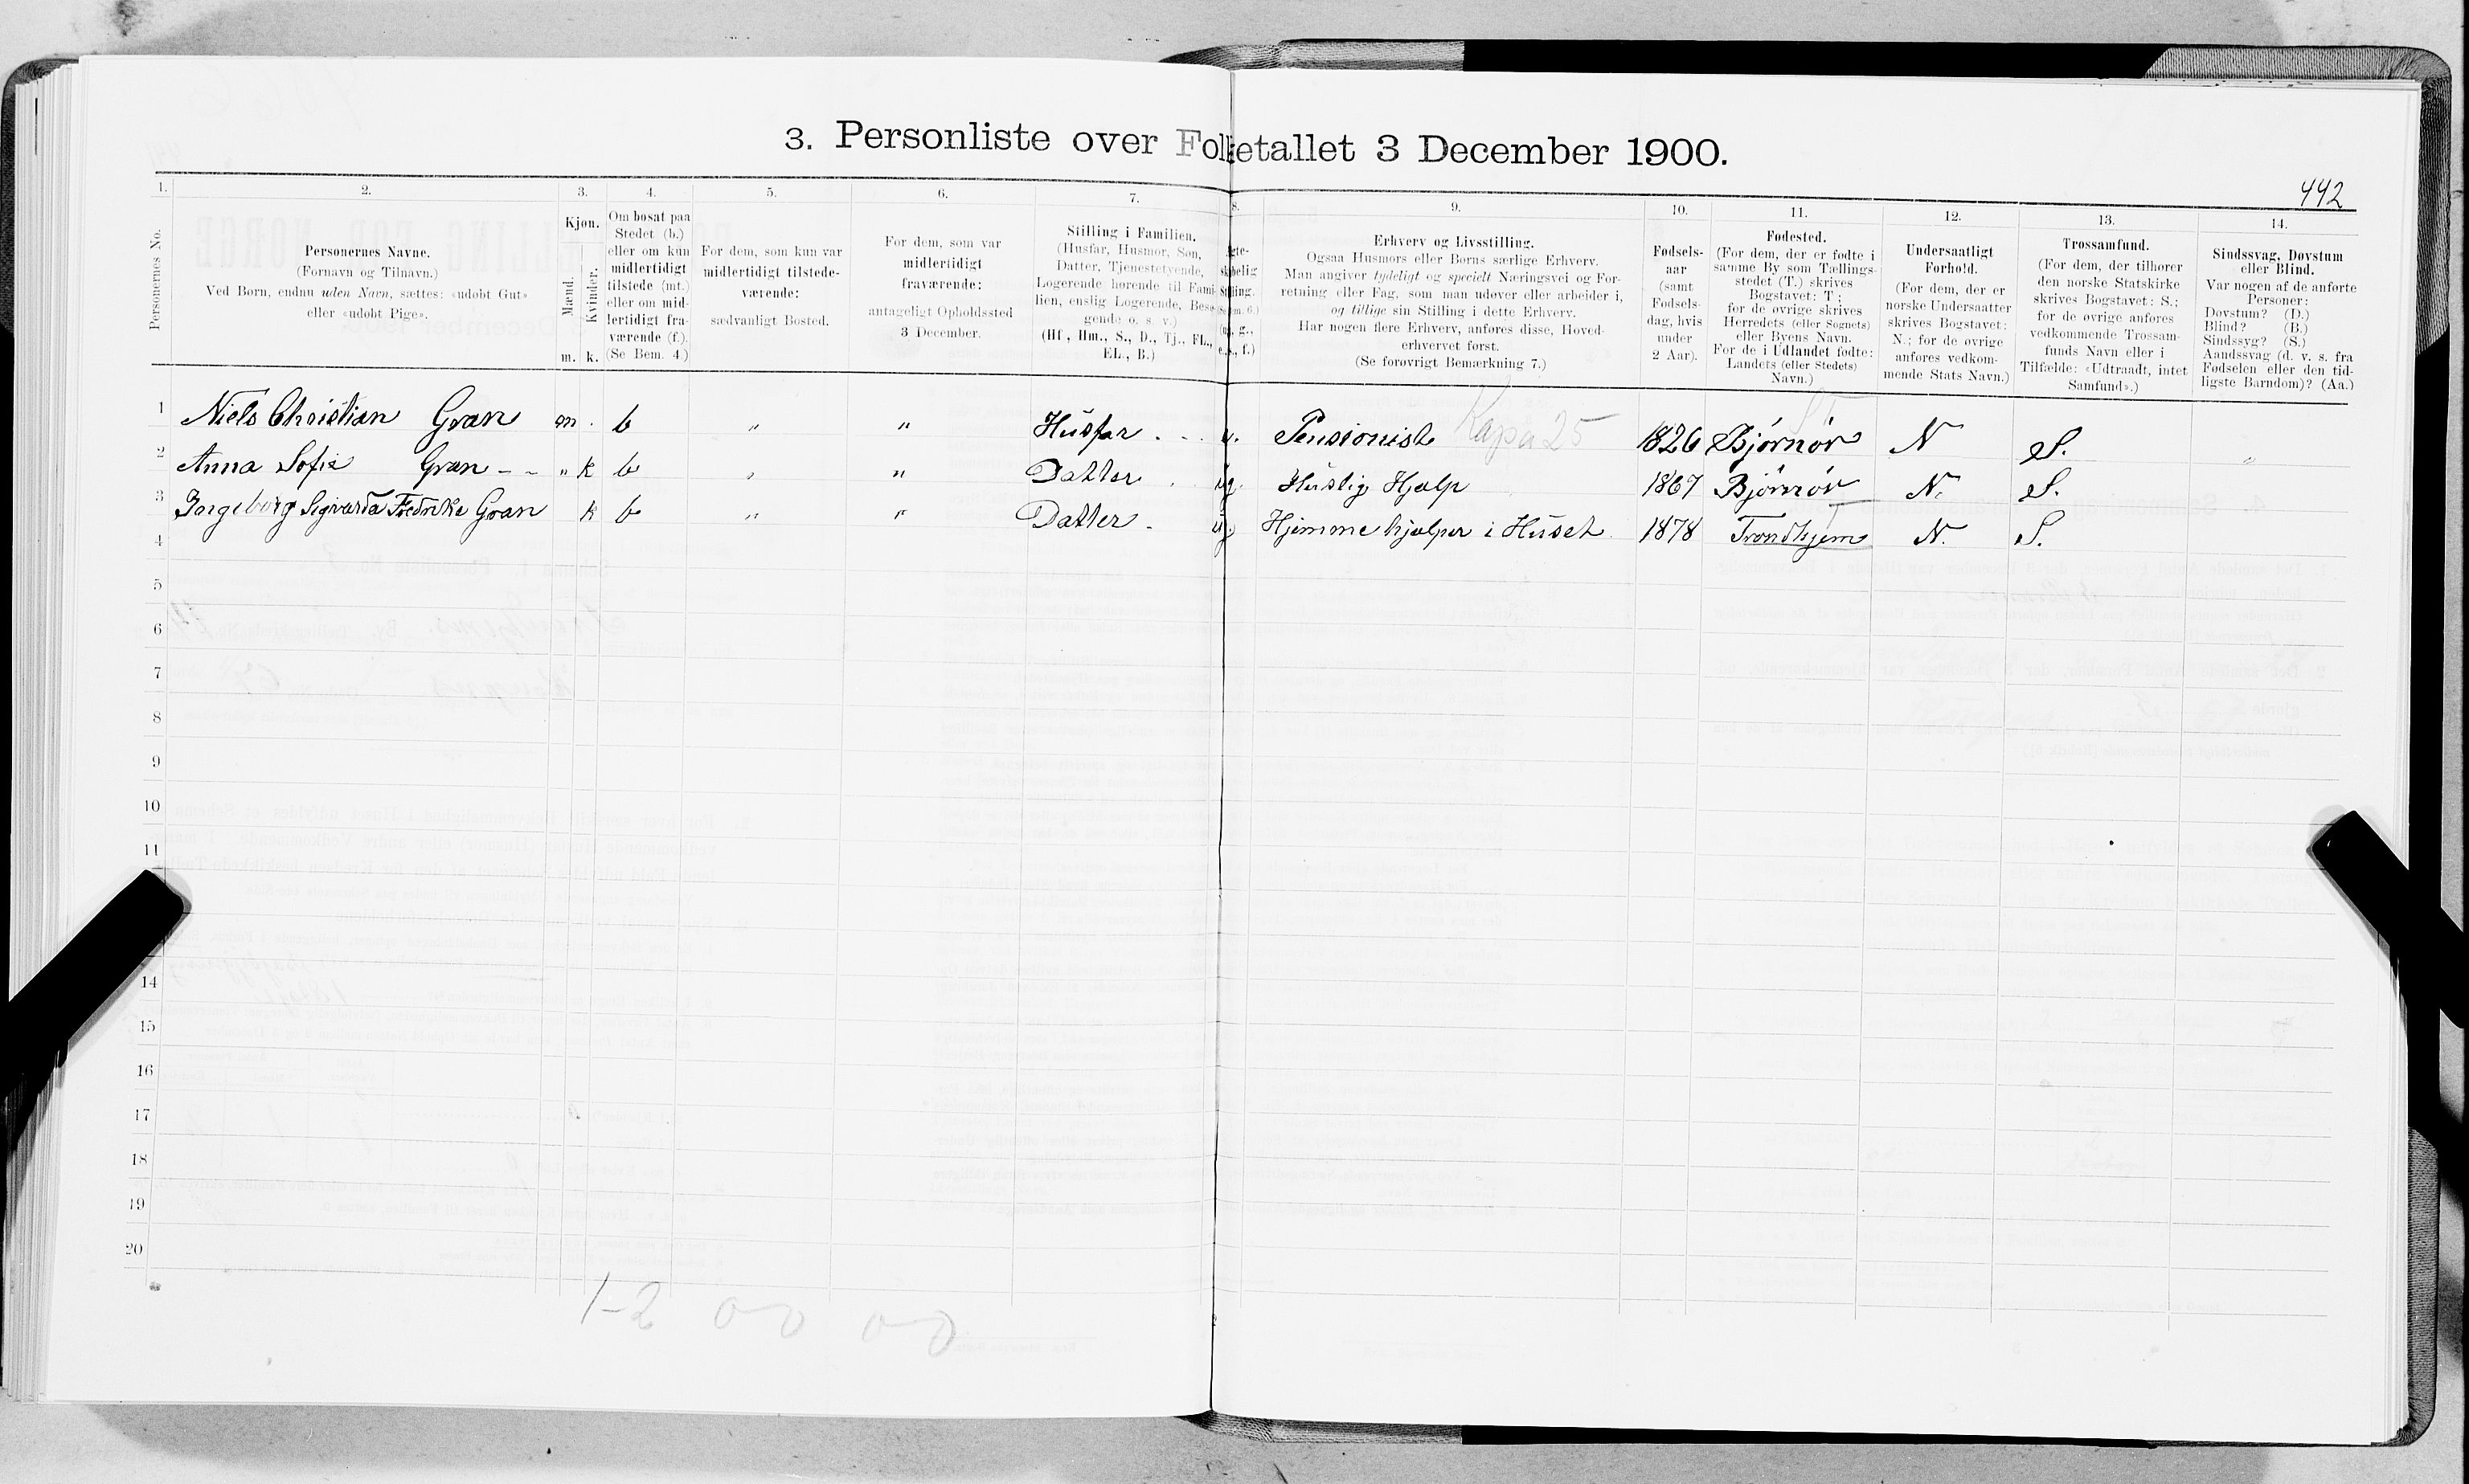 3. Personliste over Folketallet 3 December 1900.
442
1. 2. 3. 4. 5. 6. 7. 8. 9. 10. 11. 12. 13. 14.
Personernes No.
Personernes Navne.
(Fornavn og Tilnavn.)
Ved Børn, endnu uden Navn, sættes: «udøbt Gut»
eller «udøbt Pige».
Kjøn.
Mænd.
Kvinder.
m. k.
Om bosat paa
Stedet (b.)
eller om kun
midlertidigt
tilstede (mt.)
eller om mid-
lertidigt fra-
værende (f.).
(Se Bem. 4.)
For dem, som kun var
midlertidigt tilstede-
værende:
sædvanligt Bosted.
For dem, som var
midlertidigt
fraværende:
antageligt Opholdssted
3 December.
Stilling i Familien.
(Husfar, Husmor, Søn,
Datter, Tjenestetyende,
Logerende hørende til Fami-
lien, enslig Logerende, Besø-
gende o. s. v.)
(Hf., Hm., S., D., Tj., FL.,
EL., B.)
Erhverv og Livsstilling.
Ogsaa Husmors eller Børns særlige Erhverv.
Man angiver tydeligt og specielt Næringsvei og For-
retning eller Fag, som man udøver eller arbeider i,
og tillige sin Stilling i dette Erhverv.
Har nogen flere Erhverv, anføres disse, Hoved-
erhvervet først.
(Se forøvrigt Bemærkning 7.)
Fødsels-
aar
(samt
Fødsels-
dag, hvis
under
2 Aar).
Fødested.
(For dem, der er fødte i
samme By som Tællings-
stedet (T.) skrives
Bogstavet: T;
for de øvrige skrives
Herredets (eller Sognets)
eller Byens Navn.
For de i Udlandet fødte:
Landets (eller Stedets)
Navn.)
Undersaatligt
Forhold.
(For dem, der er
norske Undersaatter
skrives Bogstavet:
N.; for de øvrige
anføres vedkom-
mende Stats Navn.)
Trossamfund.
(For dem, der tilhører
den norske Statskirke
skrives Bogstavet: S.;
for de øvrige anføres
vedkommende Trossam-
funds Navn eller i
Tilfælde: «Udtraadt, intet
Samfund».)
Sindssvag, Døvstum
eller Blind.
Var nogen af de anførte
Personer:
Døvstum? (D.)
Blind? (B.)
Sindssyg? (S.)
Aandssvag (d. v. s. fra
Fødselen eller den tid-
ligste Barndom)? (Aa.)
1 Niels Christian Gran m. b " " Husfar u. Pensionist 1826 Bjørnør N S. "
2 Anna Sofie Gran " k b " " Datter ug. Huslig Hjælp 1867 Bjørnør N. S.
3 Ingeborg Sigvarda Fredrikke Gran k b " " Datter ug Hjemme hjælper i Huset 1878 Trondhjem N. S.
4
5
6
7
8
9
10
11
14
15
16
17
18
19
20
1-2 0-0 0-0